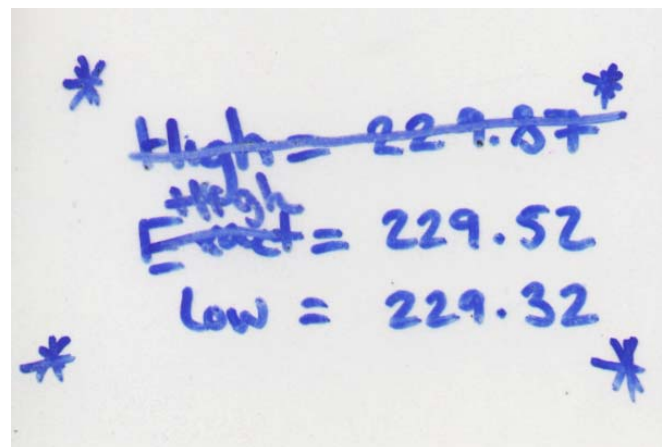 * *
High = 229.87
High
Exact = 229.52
Low = 229.32
* *